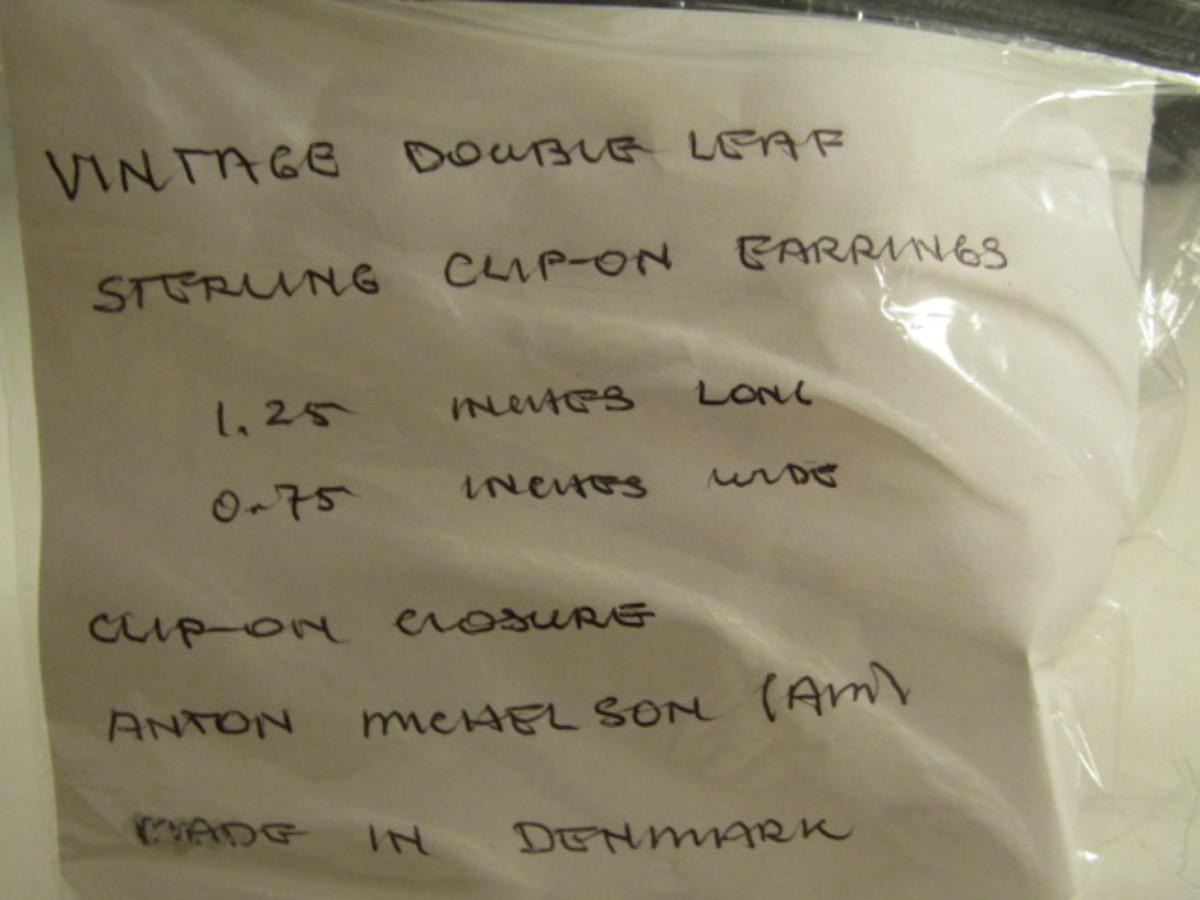 VINTAGE DOUBLE LEAF
STERLING CLIP-ON EARRINGS
1.25 INCHES LONG
0.75 INCHES WIDE
CLIP-ON CLOSURE
ANTON MICHELSON (AM)
MADE IN DENMARK